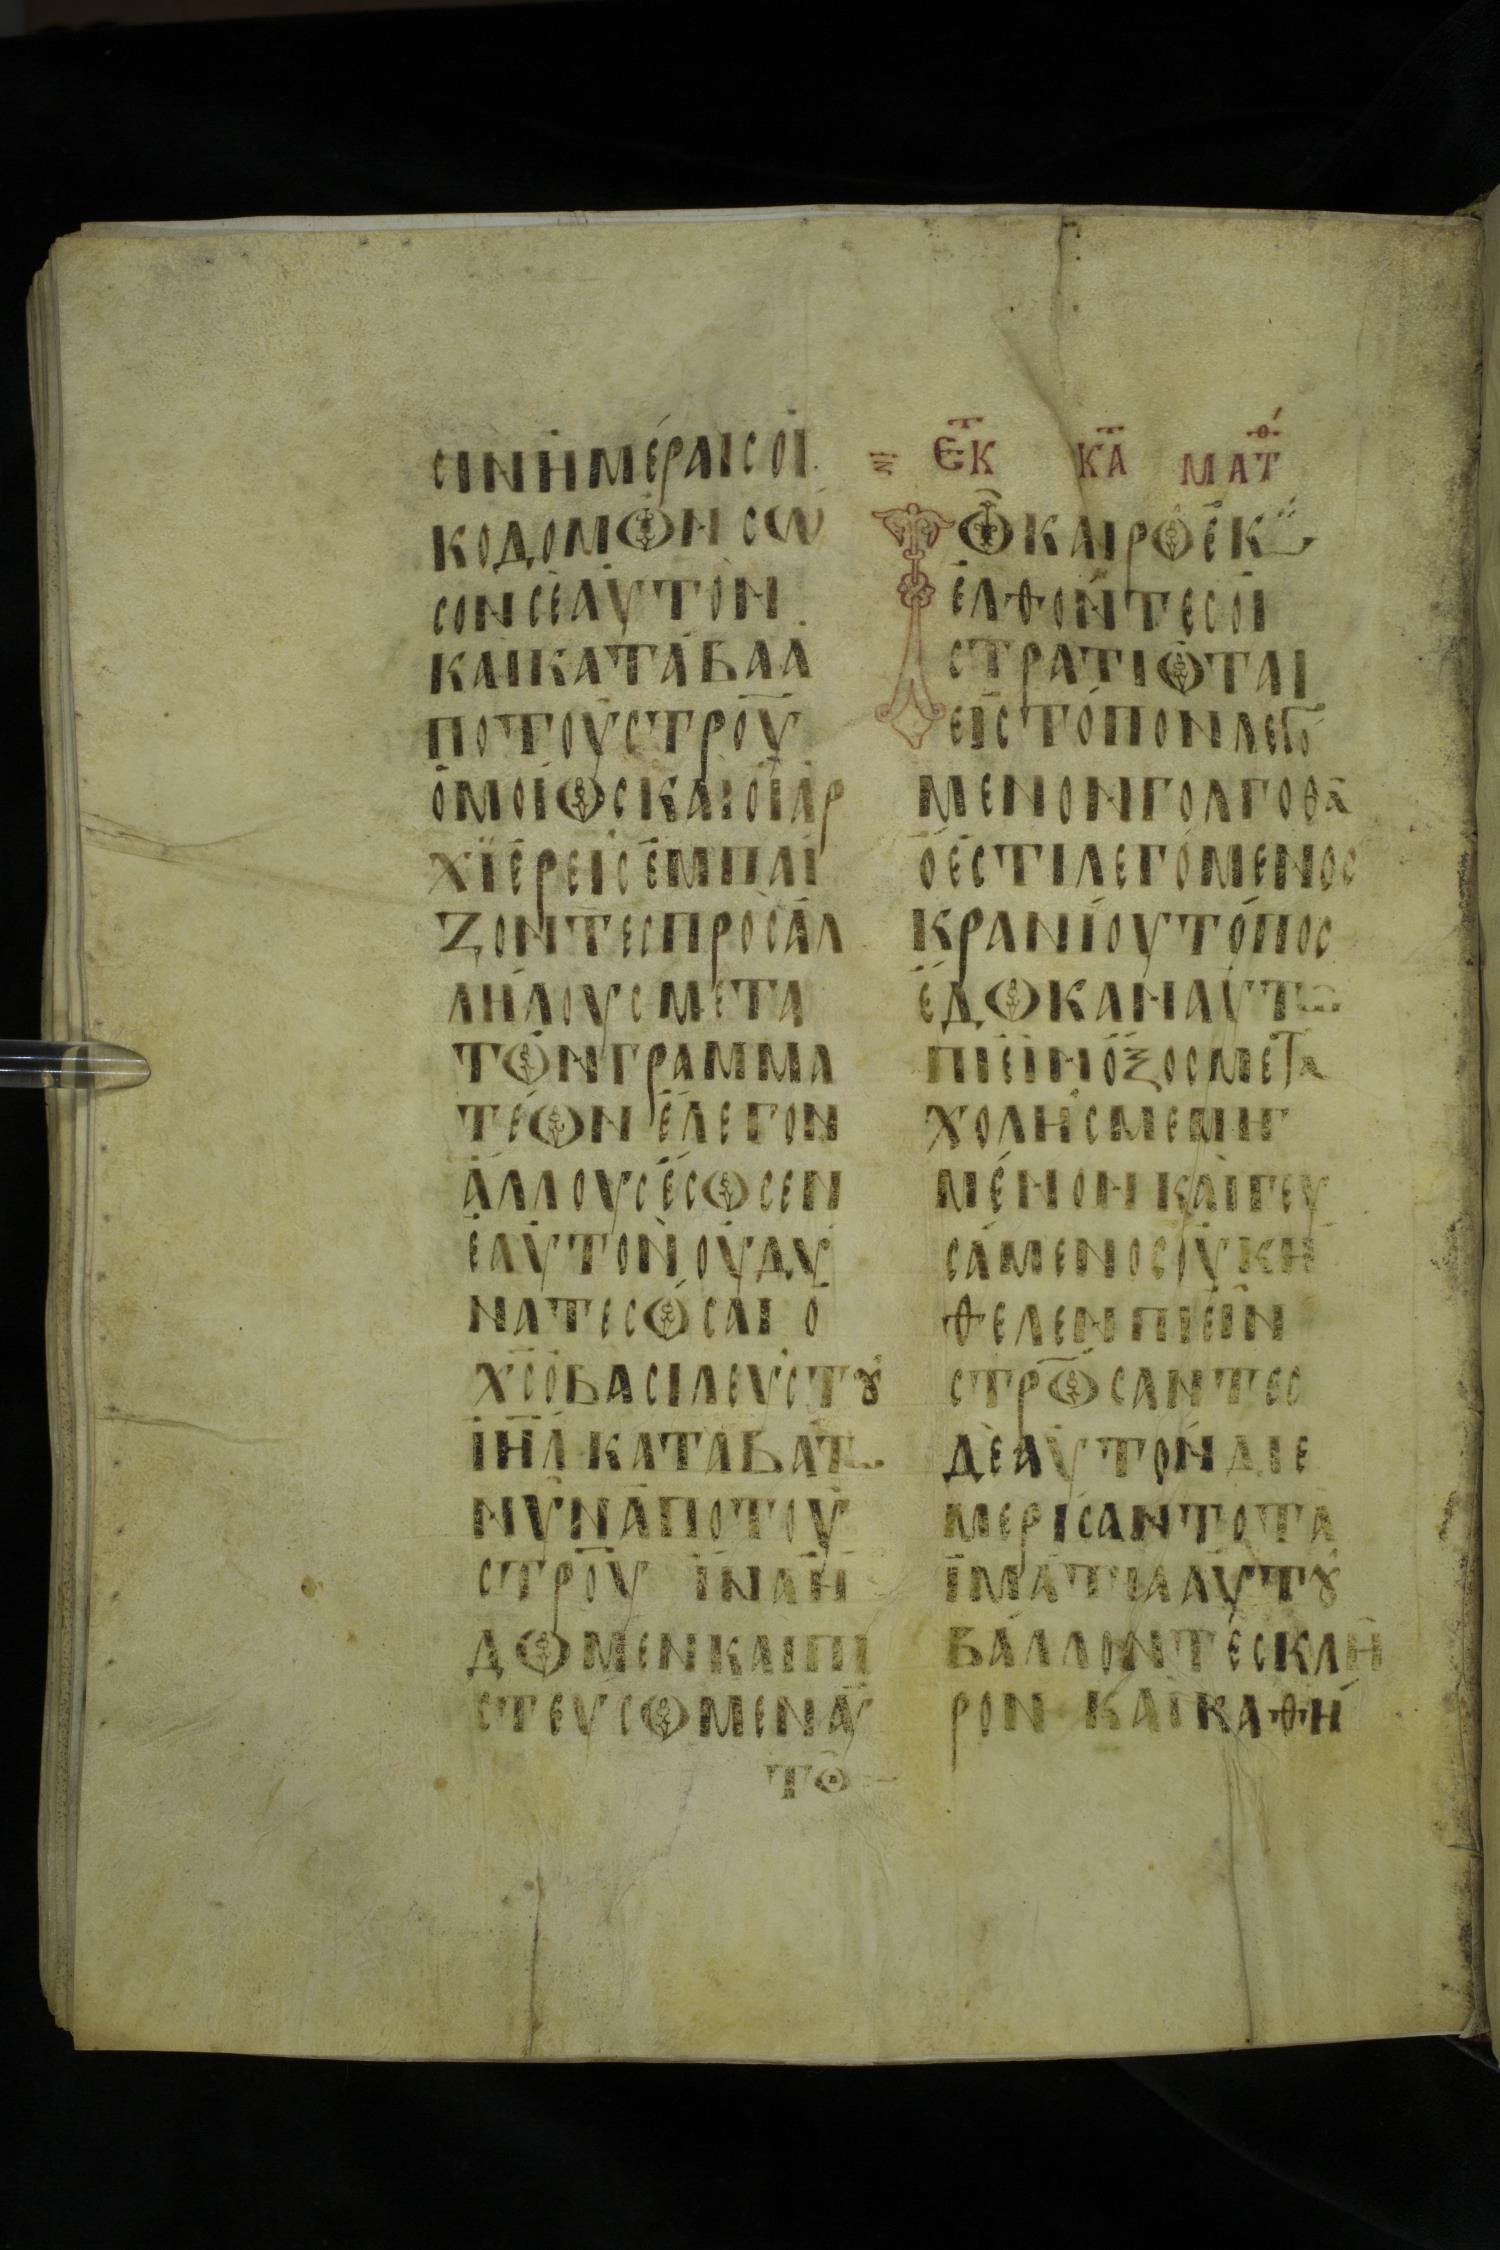 σιν ἡμέραις οἰ
κοδομῶν σῶ
σον σεαυτὸν
καὶ κατάβα ἀ
πὸ τοῦ στ̅ρ̅ο̅ῦ̅
ὁμοίως καὶ οἱ ἀρ
χϊερεῖς ἐμπαί
ζοντες πρὸς ἀλ
λήλους μετὰ
τῶν γραμμα
τέων ἔλεγον
ἄλλους ἔσωσεν
ἑαυτὸν οὐ δύ
νατε σῶσαι ὁ
χ̅ς̅ ὁ βασιλεὺς τȣ
ἰ̅η̅λ̅ καταβάτω
νῦν ἀπὸ τοῦ
στ̅ρ̅ο̅ῦ̅ ἵνα ἴ
δωμεν καὶ πι
στεύσωμεν αὐ
τῶ
ἐκ κ̅α̅ ματθ
Τῶ καιρῶ ἐκ
ἐλθόντες οἱ
στρατιῶται
εἰς τόπον λεγό
μενον γολγοθᾶ
ὅ ἐστι λεγόμενος
κρανίου τόπος
ἔδωκαν αὐτῶ
πιεῖν ὄξος μετὰ
χολῆς μεμιγ
μένον καὶ γευ
σάμενος οὐκ ἤ
θελεν πιεῖν
στ̅ρ̅ώσαντες
δὲ αὐτὸν διε
μερίσαντο τὰ
ἱμάτια αὐτȣ
βάλλοντες κλῆ
ρον καὶ καθή